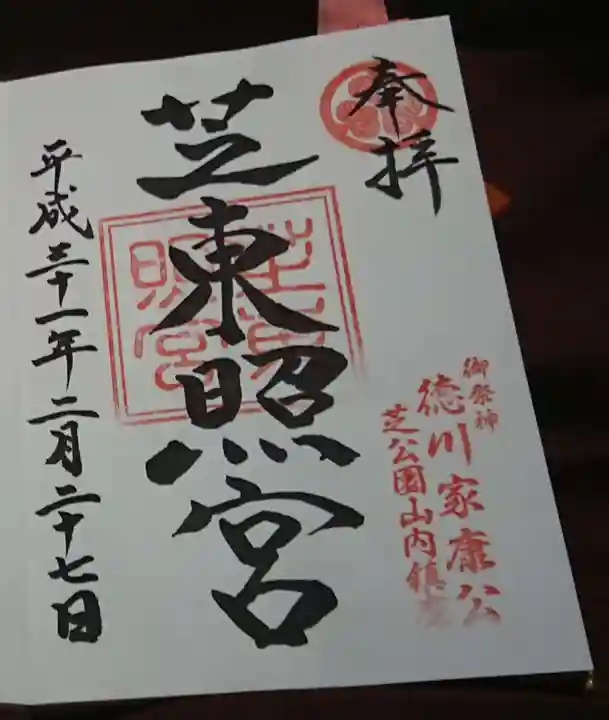 奉拝
御祭神
徳川家康公
芝公園山内鎮座
芝東照宮
芝東照宮
平成三十一年二月二十七日